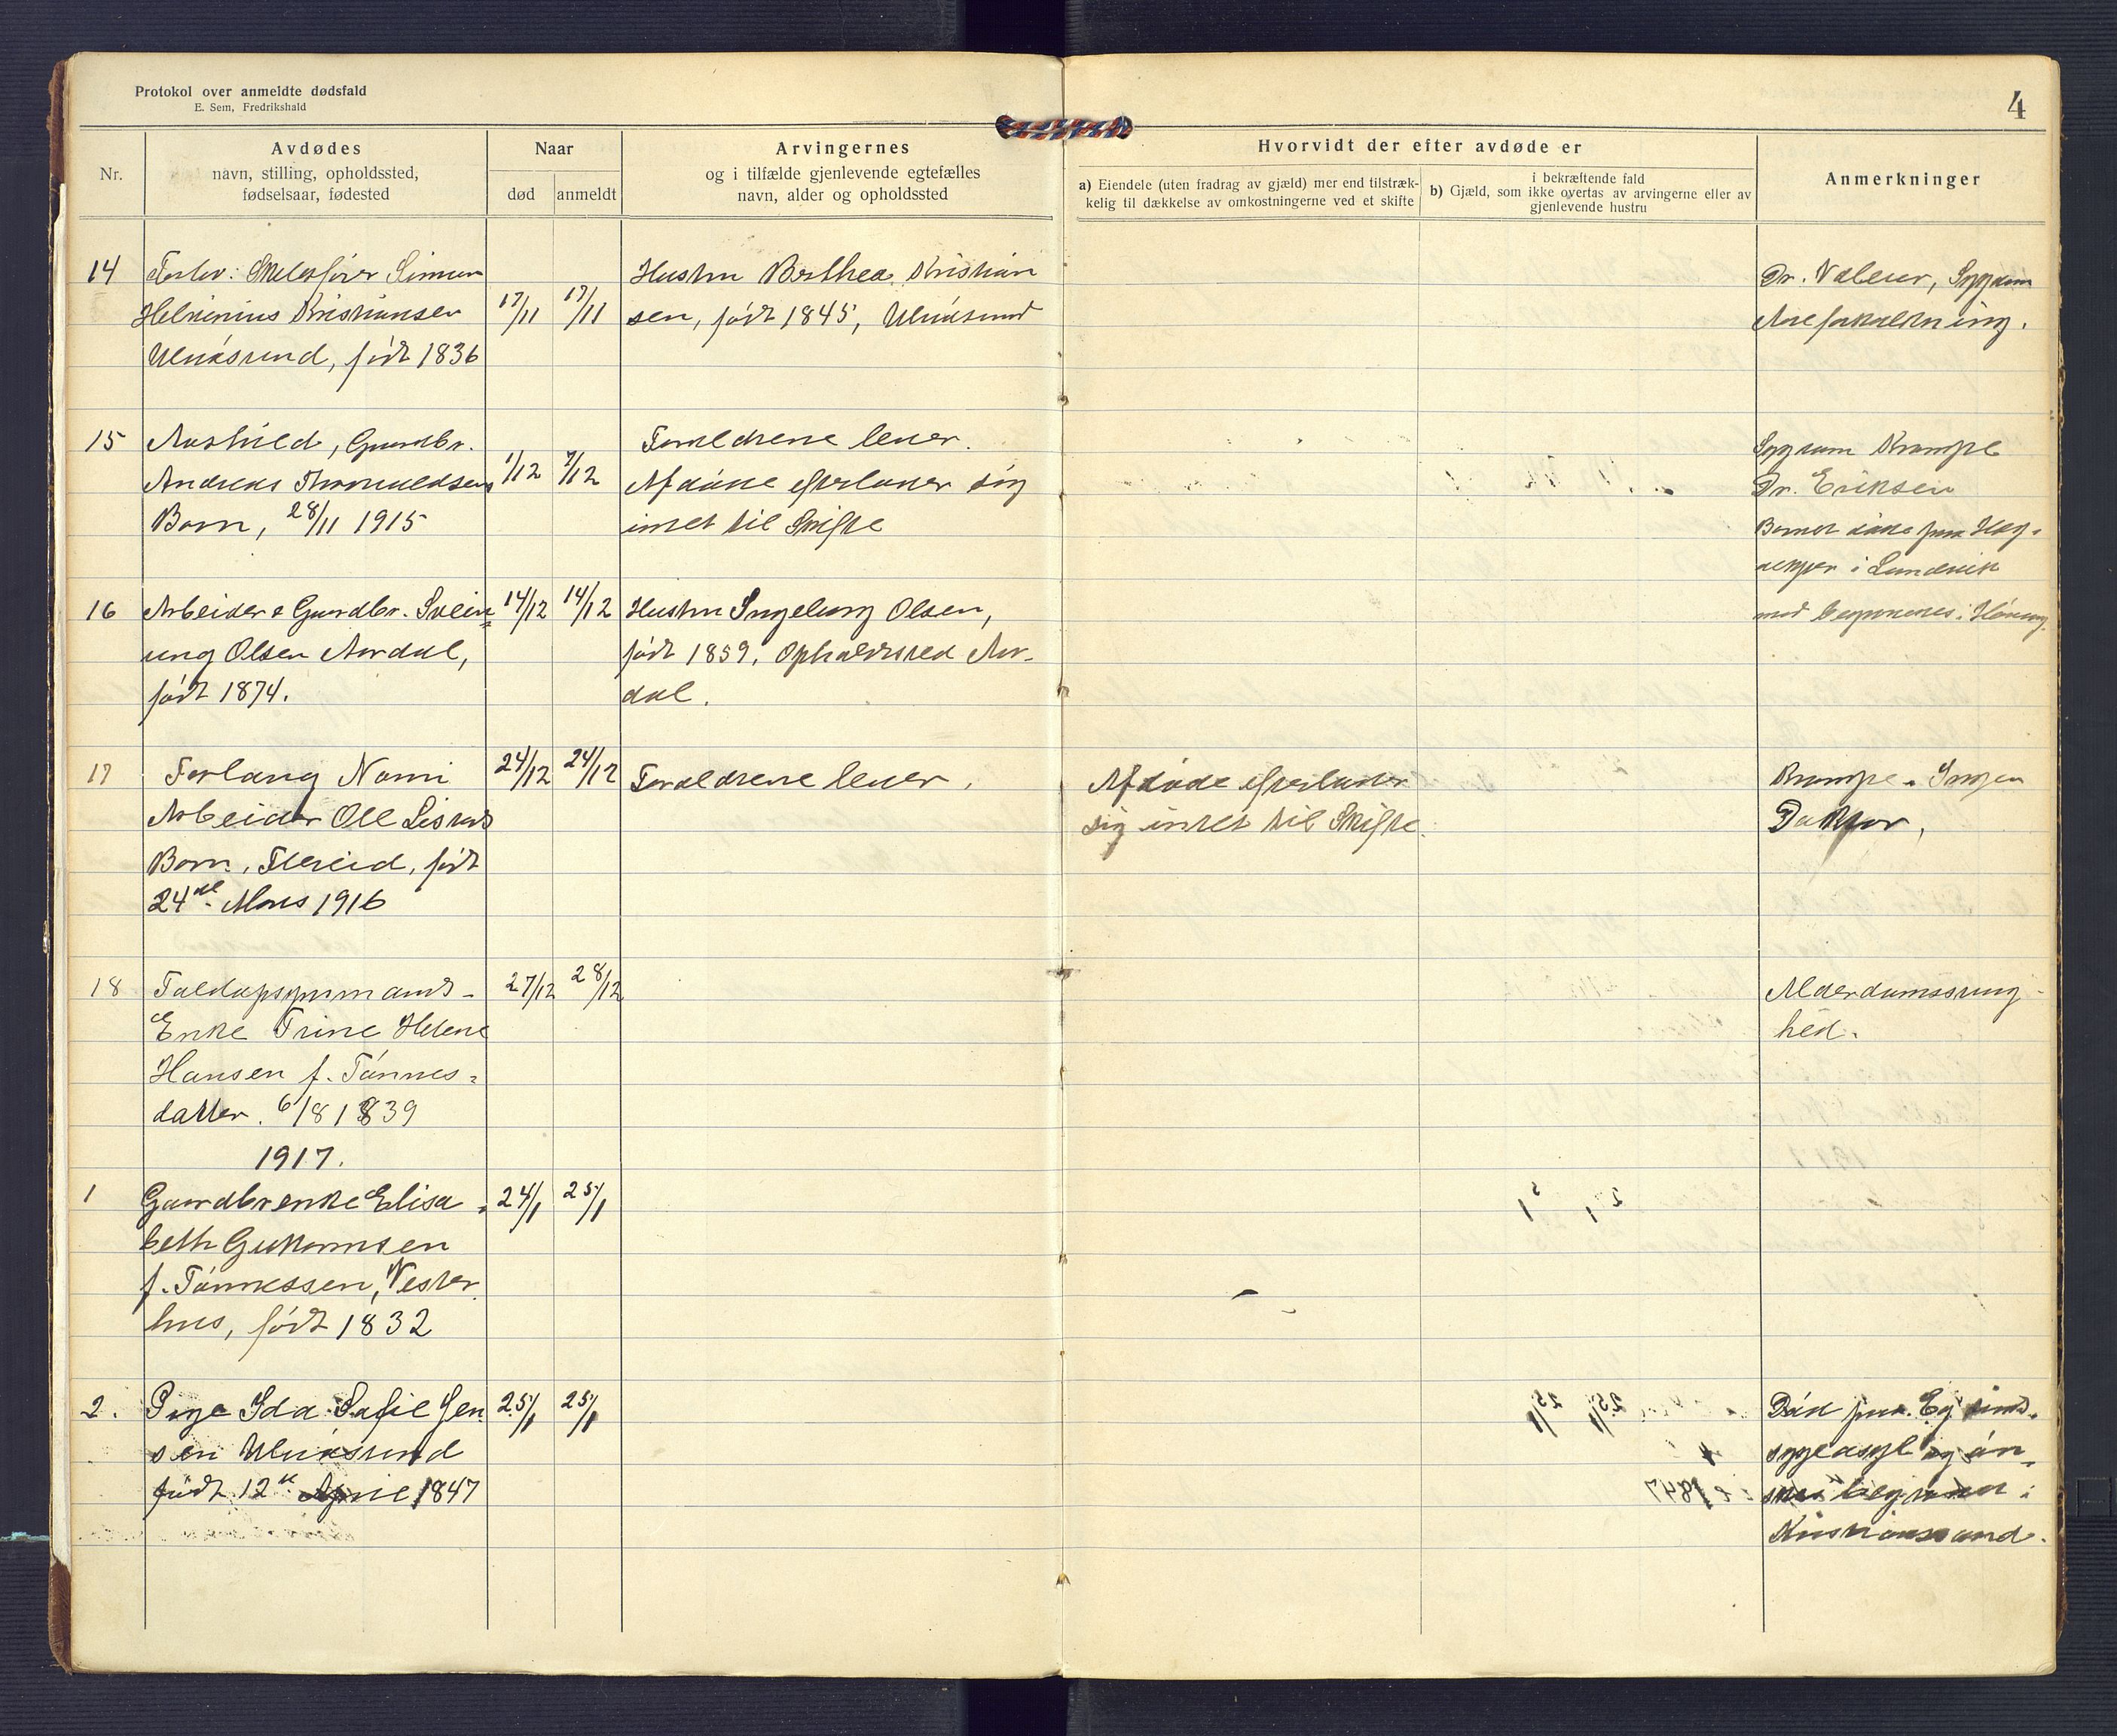 Protokol over anmeldte dødsfald
E. Sem, Fredrikshald
4
Nr.
Avdødes
navn, stilling, opholdssted,
fødselsaar, fødested
Naar
død
anmeldt
Arvingernes
og i tilfælde gjenlevende egtefælles
navn, alder og opholdssted
Hvorvidt der efter avdøde er
a) Eiendele (uten fradrag av gjæld) mer end tilstræk-
kelig til dækkelse av omkostningerne ved et skifte
i bekræftende fald
b) Gjæld, som ikke overtas av arvingerne eller av
gjenlevende hustru
Anmerkninger
14
Simon
Kristiansen
født 1836
17/11
17/11
Hustru Berthea Kristian
sen, født 1845,
Dr. Valeur, Sygdom
Aareforkalkning.
15
Aashild, Gaardbr.
Andreas
Barn, 28/11 1915
1/12
7/12
Forældrene lever.
Afdøde efterlader sig
intet til Skifte
Sygdom Krampe
Dr. Eriksen
Barnet døde paa
i Landvik
16
Arbeider & Gaardbr. Svein
ung Olsen Aurdal,
født 1874.
14/12
14/12
Hustru Ingeborg Olsen,
født 1859, Opholdssted Aur-
dal.
17
Nomi
Arbeider Ole
Barn, født
24de Mars 1916
24/12
24/12
Forældrene lever.
Afdøde efterlader
sig intet til Skifte.
Krampe. Ingen
Doktor.
18
Enke Trine Helene
Hansen f. Tønnes=
datter. 6/8 1839
27/12
28/12
Alderdomssvag-
hed.
1917.
1
Gaardbrenke Elisa=
beth Guttormsen
f. Tønnessen, Vester
hus, født 1832
24/1
25/1
2.
Pige Ida Sofie Jen
sen
født 12te April 1847
25/1
25/1
Død paa Eg sinds-
sygeasyl og øn-
skes begravet i
Kristianssand.